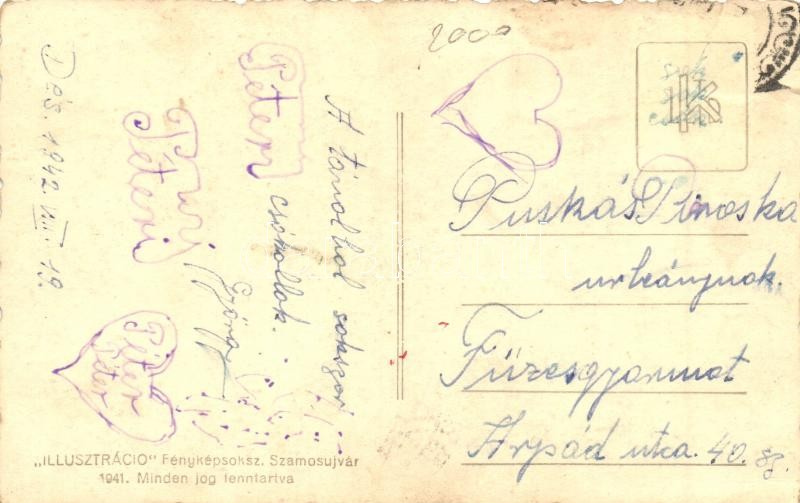 Dés. 1942. VIII. 19.
A távolból sokszor
csókollak.
Péteri
Péteri
Péter
Péter
2000
sok
sok
Puskás Piroska
urleánynak.
Füzesgyarmat
Árpád utca. 40. sz.
„ILLUSZTRÁCIO" Fényképsoksz. Szamosujvár
1941. Minden jog fenntartva